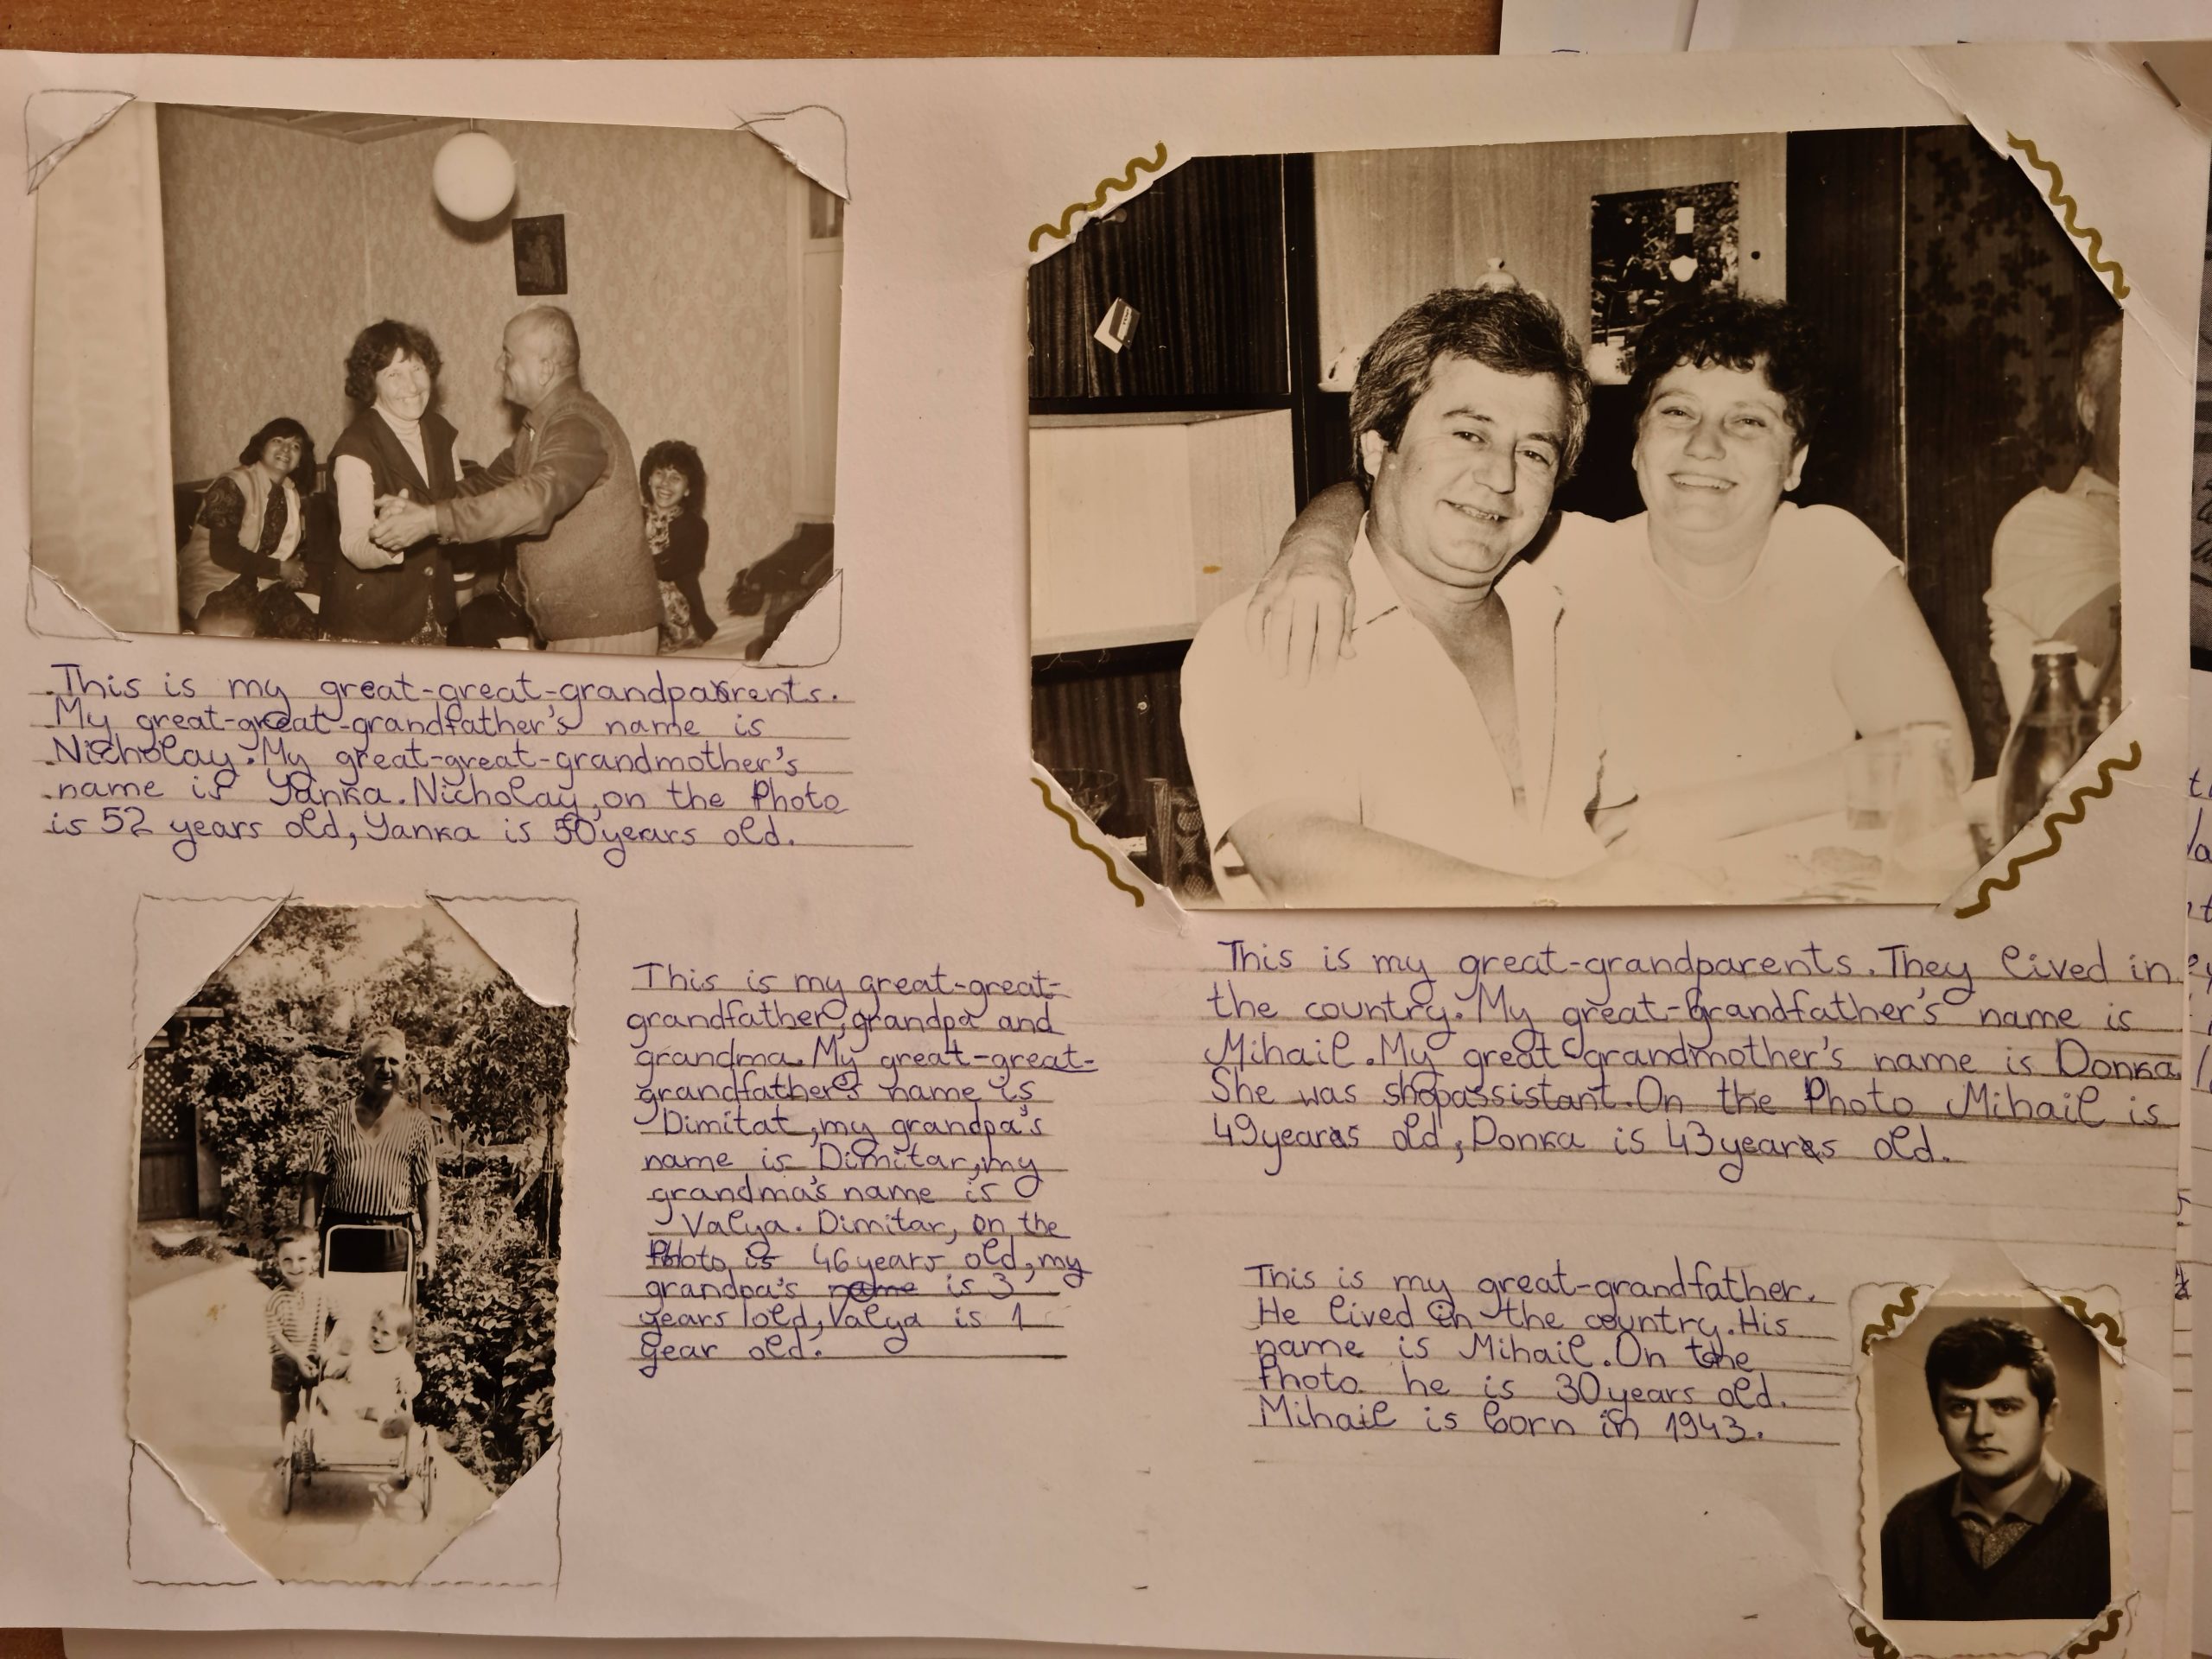 This is my great-great-grandparents.
My great-great-grandfather's name is
Nicholay. My great-great-grandmother's
name is Yanka. Nicholay, on the Photo
is 52 years old, Yanka is 50 years old.
This is my great-great-
grandfather, grandpa and
grandma. My great-great-
grandfather's name is
Dimitat, my grandpa's
name is Dimitar, my
grandma's name is
Valya. Dimitar, on the
Photo is 46 years old, my
grandpa's name is 3
years old, Valya is 1
year old.
This is my great-grandparents. They lived in
the country. My great-grandfather's name is
Mihail. My great-grandmother's name is Donka
She was shopassistant. On the Photo Mihail is
49 years old, Donka is 43 years old.
This is my great-grandfather.
He lived in the country. His
name is Mihail. On the
Photo he is 30 years old.
Mihail is born in 1943.